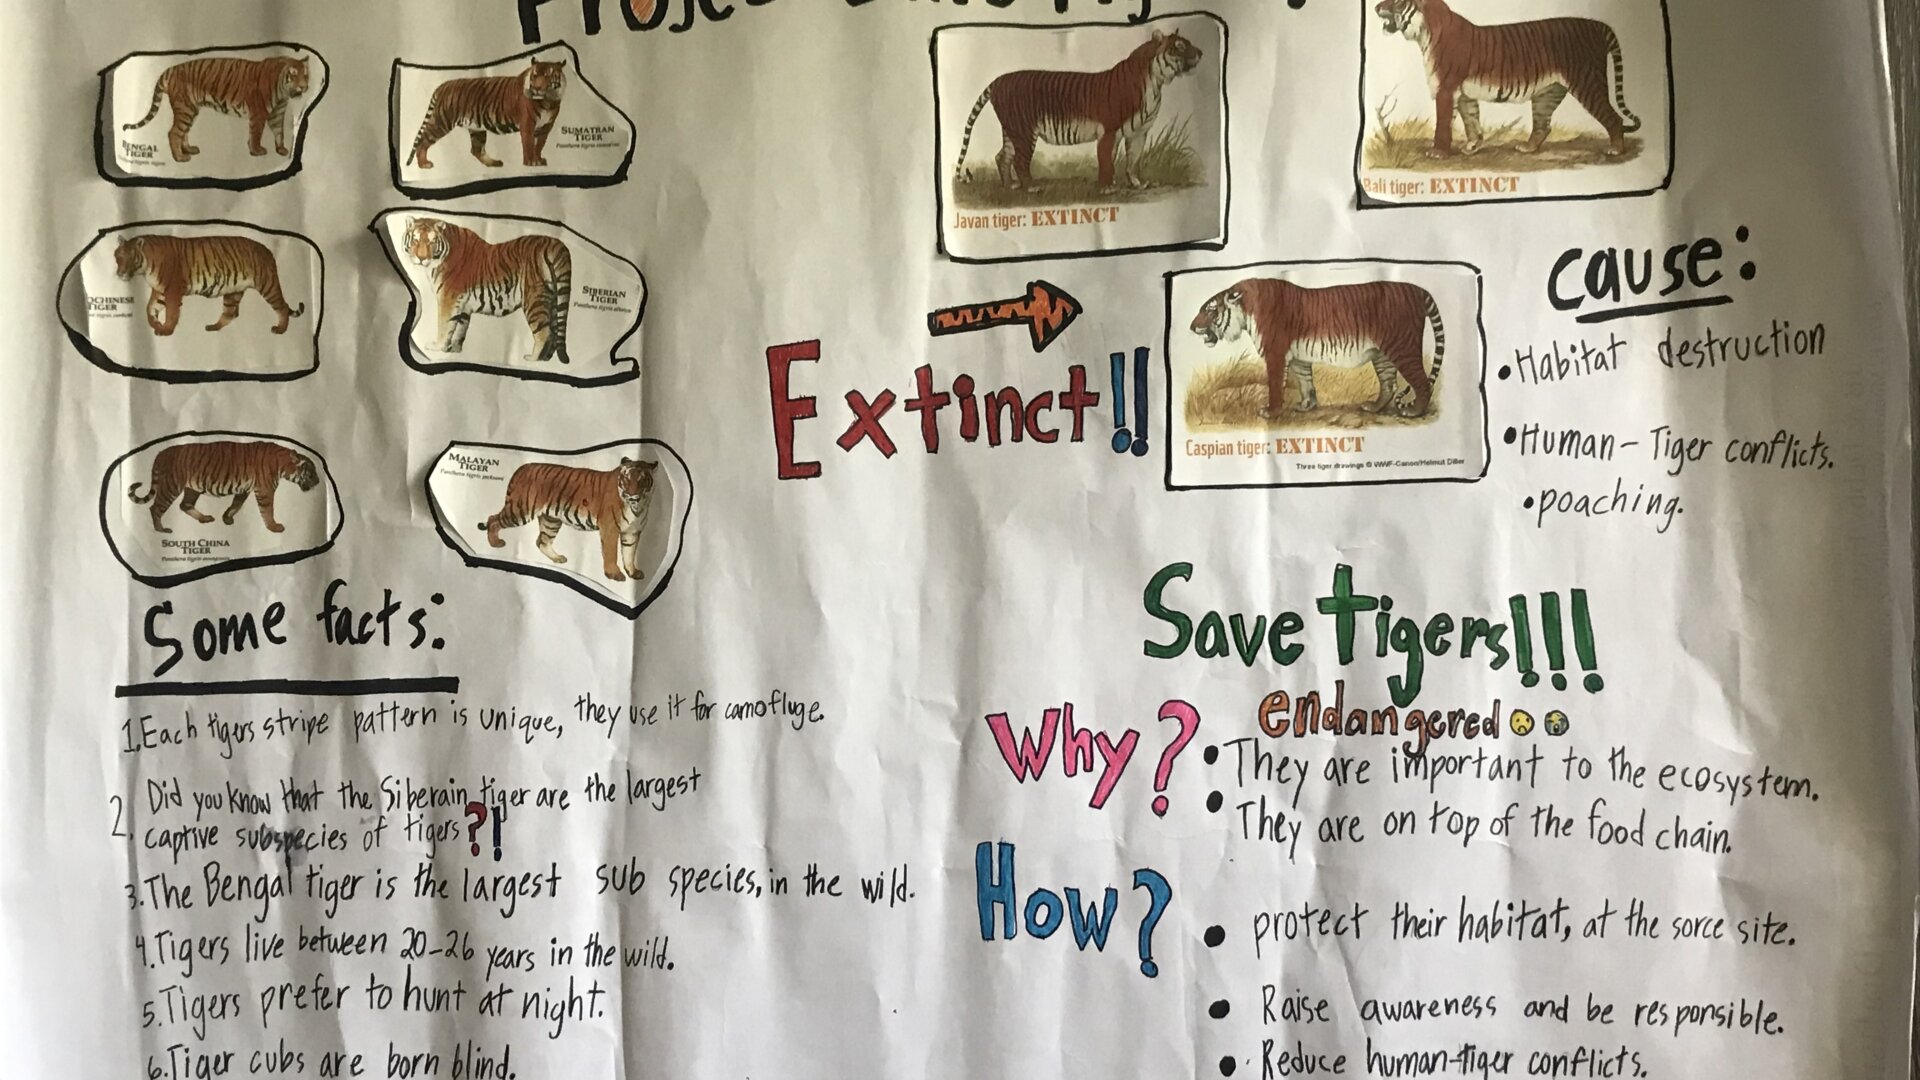 BENGAL
TIGER
SUMATRAN
TIGER
TIGER
SIBERIAN
TIGER
SOUTH CHINA
TIGER
MALAYAN
TIGER
Javan tiger: EXTINCT
Bali tiger: EXTINCT
Extinct!!
Caspian tiger: EXTINCT
Three tiger drawings © WWF-Canon/Helmut Diller
cause:
•Habitat destruction
•Human-Tiger conflicts.
•poaching.
Some facts:
1.Each tigers stripe pattern is unique, they use it for camofluge.
2. Did you know that the Siberain tiger are the largest
captive subspecies of tigers?!
3.The Bengal tiger is the largest sub species, in the wild.
4.Tigers live between 20-26 years in the wild.
5.Tigers prefer to hunt at night.
6.Tiger cubs are born blind.
Save tigers!!!
endangered
Why?
• They are important to the ecosystem.
• They are on top of the food chain.
How?
• protect their habitat, at the sorce site.
• Raise awareness and be responsible.
• Reduce human-tiger conflicts.